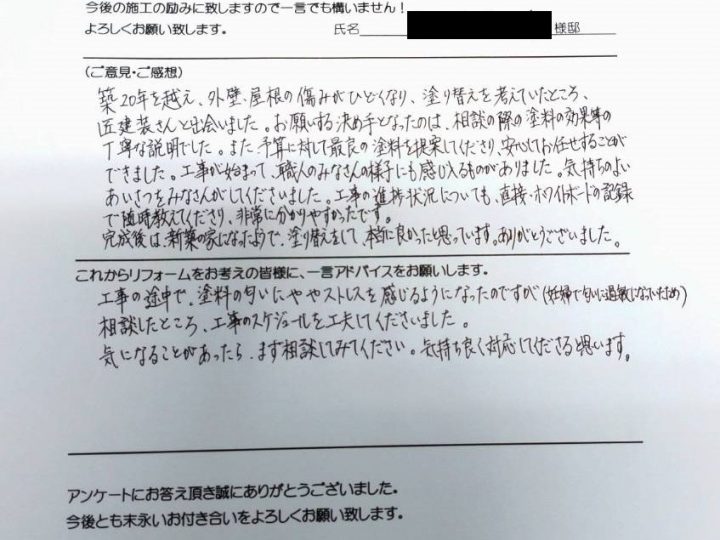 今後の施工の励みに致しますので一言でも構いません！
よろしくお願い致します。 氏名 様邸
（ご意見・ご感想）
築20年を越え、外壁・屋根の傷みがひどくなり、塗り替えを考えていたところ、
匠建装さんと出会いました。お願いする決め手となったのは、相談の際の塗料の効果等の
丁寧な説明でした。また予算に対して最良の塗料を提案してくださり、安心してお任せすることが
できました。工事が始まって、職人のみなさんの様子にも感じ入るものがありました。気持ちのよい
あいさつをみなさんがしてくださいました。工事の進捗状況についても、直接・ホワイトボードの記録
で随時教えてくださり、非常に分かりやすかったです。
完成後は、新築の家になったようで、塗り替えをして、本当に良かったと思っています。ありがとうございました。
これからリフォームをお考えの皆様に、一言アドバイスをお願いします。
工事の途中で、塗料の匂いにややストレスを感じるようになったのですが（妊婦で匂いに過敏になっていたため）
相談したところ、工事のスケジュールを工夫してくださいました。
気になることがあったら、まず相談してみてください。気持ち良く対応してくださると思います。
アンケートにお答え頂き誠にありがとうございました。
今後とも末永いお付き合いをよろしくお願い致します。